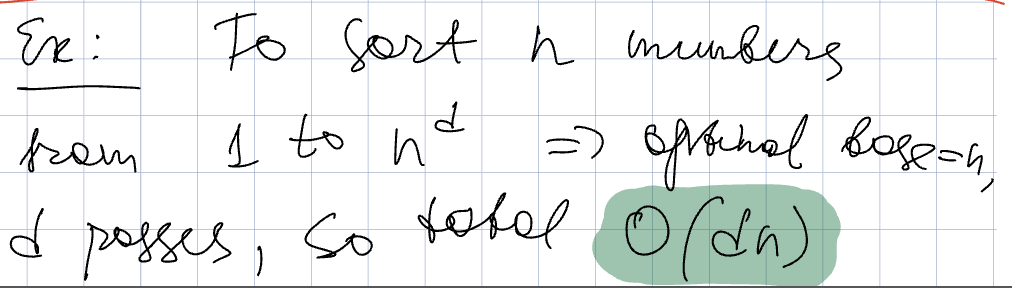 Ex: To sort n numbers
from 1 to n^d => optimal base=n,
d passes, so total O(dn)